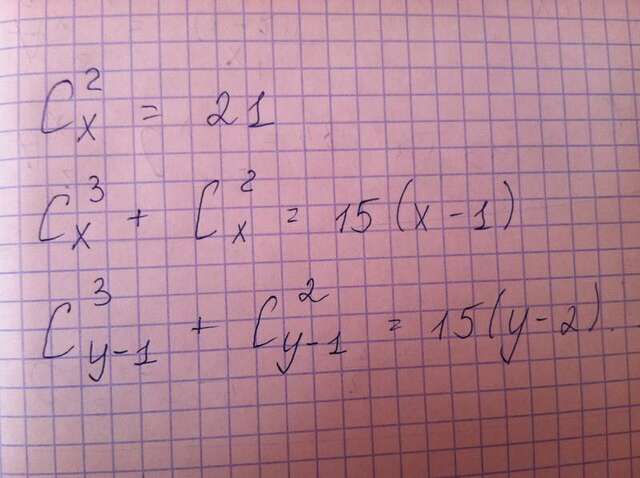 C_x^2 = 21
C_x^3 + C_x^2 = 15(x-1)
C_{y-1}^3 + C_{y-1}^2 = 15(y-2).